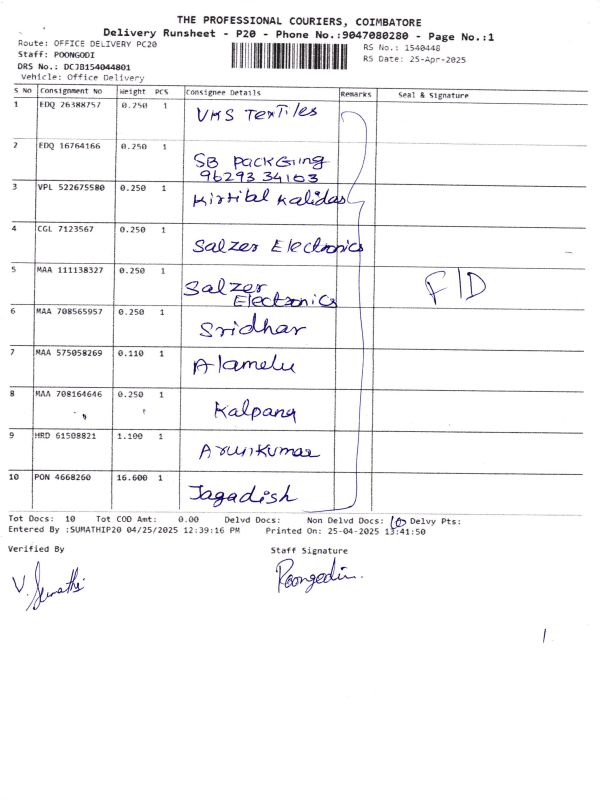 THE PROFESSIONAL COURIERS, COIMBATORE
Delivery Runsheet - P20 - Phone No.:9047080280 - Page No.:1
Route: OFFICE DELIVERY PC20
RS No.: 1540448
Staff: POONGODI
RS Date: 25-Apr-2025
DRS No.: DCJB154044801
Vehicle: Office Delivery
S No Consignment No Weight PCS Consignee Details Remarks Seal & Signature
1 EDQ 26388757 0.250 1 VKS Textiles
2 EDQ 16764166 0.250 1 SB Packging
96293 34103
3 VPL 522675580 0.250 1 Kalidas
4 CGL 7123567 0.250 1 Salzer Electronics
5 MAA 111138327 0.250 1 Salzer
Electronics
F/D
6 MAA 708565957 0.250 1 Sridhar
7 MAA 575058269 0.110 1 Alamelu
8 MAA 708164646 0.250 1 Kalpana
9 HRD 61508821 1.100 1 Arunkumar
10 PON 4668260 16.600 1 Jagadish
Tot Docs: 10 Tot COD Amt: 0.00 Delvd Docs: Non Delvd Docs: 10 Delvy Pts:
Entered By :SUMATHIP20 04/25/2025 12:39:16 PM Printed On: 25-04-2025 13:41:50
Verified By Staff Signature
V. Sumathi Poongodi